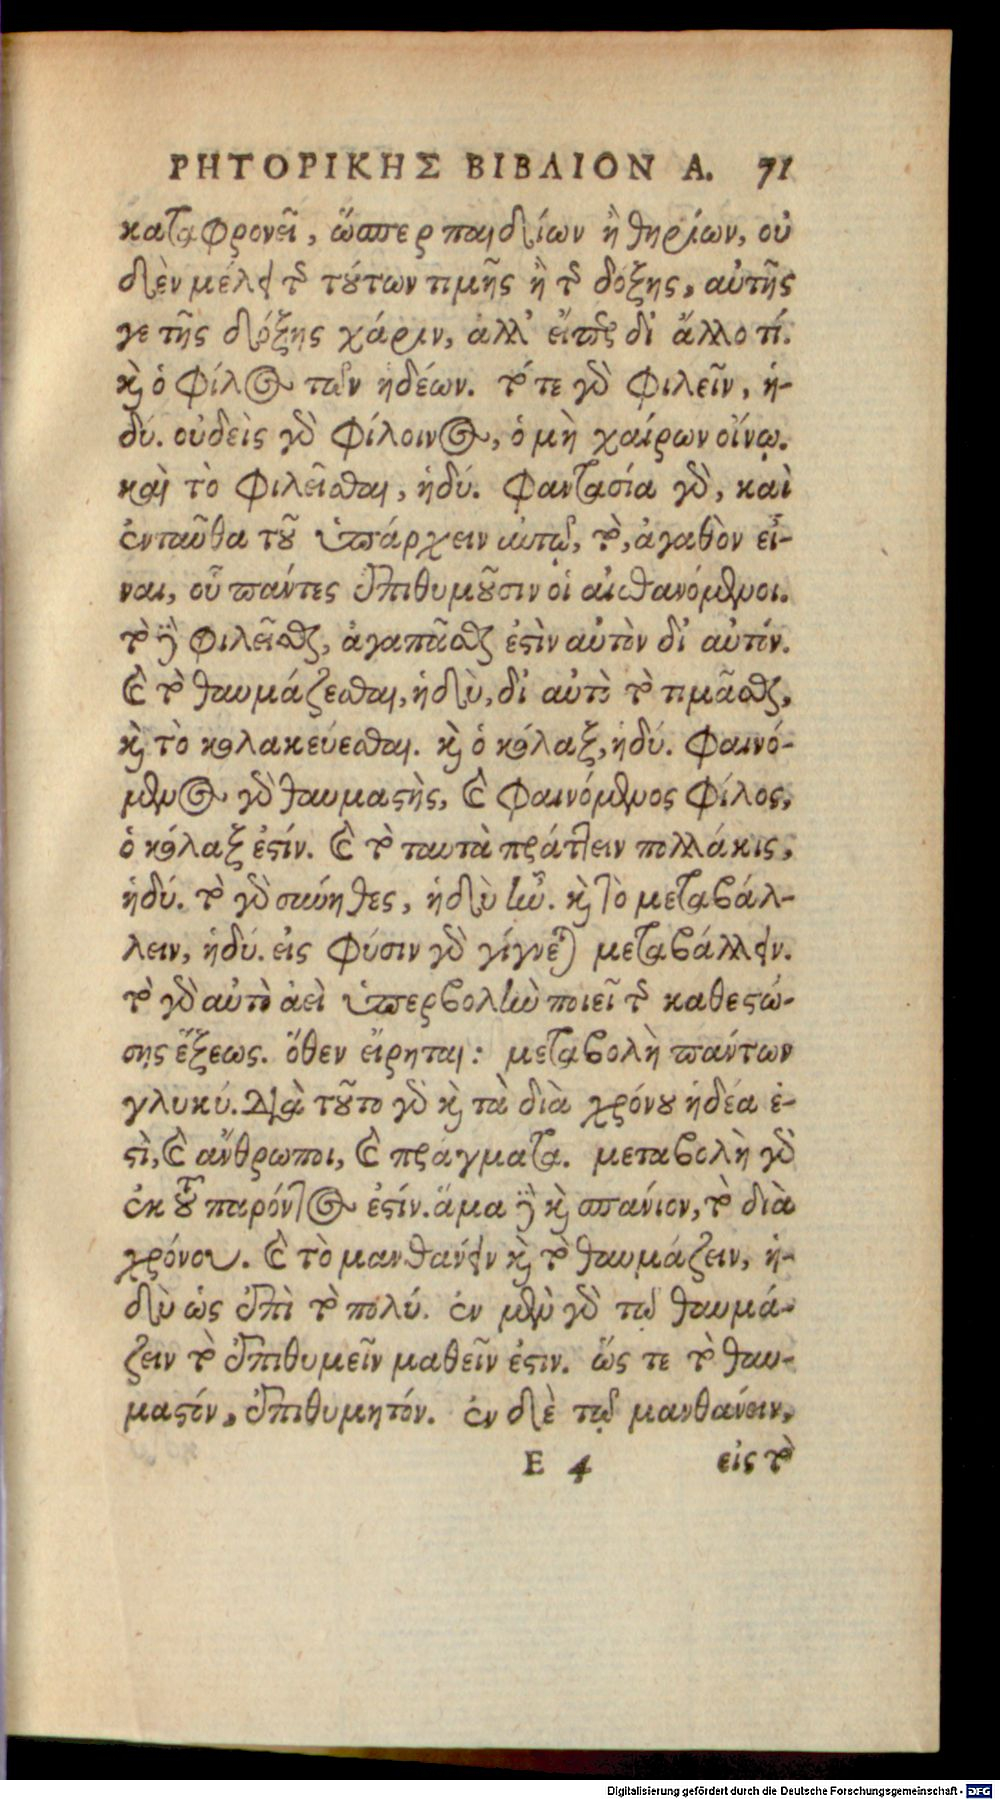 ΡΗΤΟΡΙΚΗΣ ΒΙΒΛΙΟΝ Α. 71
καταφρονεῖ, ὥσπερ παιδίων ἢ θηρίων, οὐ
δὲν μέλει τῆς τούτων τιμῆς ἢ τῆς δόξης, αὐτῆς
γε τῆς δόξης χάριν, ἀλλ' εἴπερ δι' ἄλλο τί.
καὶ ὁ φίλος τῶν ἡδέων. τό τε γὰρ φιλεῖν, ἡ-
δύ. οὐδεὶς γὰρ φίλοινος, ὁ μὴ χαίρων οἴνῳ.
καὶ τὸ φιλεῖσθαι, ἡδύ. φαντασία γὰρ, καὶ
ἐνταῦθα τοῦ ὑπάρχειν αὐτῷ, τὸ, ἀγαθὸν εἶ-
ναι, οὗ πάντες ἐπιθυμοῦσιν οἱ αἰσθανόμενοι.
τὸ δὲ φιλεῖσθαι, ἀγαπᾶσθαι ἐστὶν αὐτὸν δι' αὐτόν.
καὶ τὸ θαυμάζεσθαι, ἡδὺ, δι' αὐτὸ τὸ τιμᾶσθαι,
καὶ τὸ κολακεύεσθαι. καὶ ὁ κόλαξ, ἡδύ. φαινό-
μενος γὰρ θαυμαστὴς, καὶ φαινόμενος φίλος,
ὁ κόλαξ ἐστίν. καὶ τὸ ταυτὰ πράττειν πολλάκις,
ἡδύ. τὸ γὰρ σύνηθες, ἡδὺ ἦν. καὶ τὸ μεταβάλ-
λειν, ἡδύ. εἰς φύσιν γὰρ γίγνεται μεταβάλλειν.
τὸ γὰρ αὐτὸ ἀεὶ ὑπερβολὴν ποιεῖ τῆς καθεστώ-
σης ἕξεως. ὅθεν εἴρηται: μεταβολὴ πάντων
γλυκύ. Διὰ τοῦτο γὰρ καὶ τὰ διὰ χρόνου ἡδέα ἐ-
στὶ, καὶ ἄνθρωποι, καὶ πράγματα. μεταβολὴ γὰρ
ἐκ τοῦ παρόντος ἐστίν. ἅμα δὲ καὶ σπάνιον, τὸ διὰ
χρόνου. καὶ τὸ μανθάνειν καὶ τὸ θαυμάζειν, ἡ-
δὺ ὡς ἐπὶ τὸ πολύ. ἐν μὲν γὰρ τῷ θαυμά-
ζειν τὸ ἐπιθυμεῖν μαθεῖν ἐστιν. ὥς τε τὸ θαυ-
μαστόν, ἐπιθυμητόν. ἐν δὲ τῷ μανθάνειν,
Ε 4 εἰς τὸ
Digitalisierung gefördert durch die Deutsche Forschungsgemeinschaft - DFG